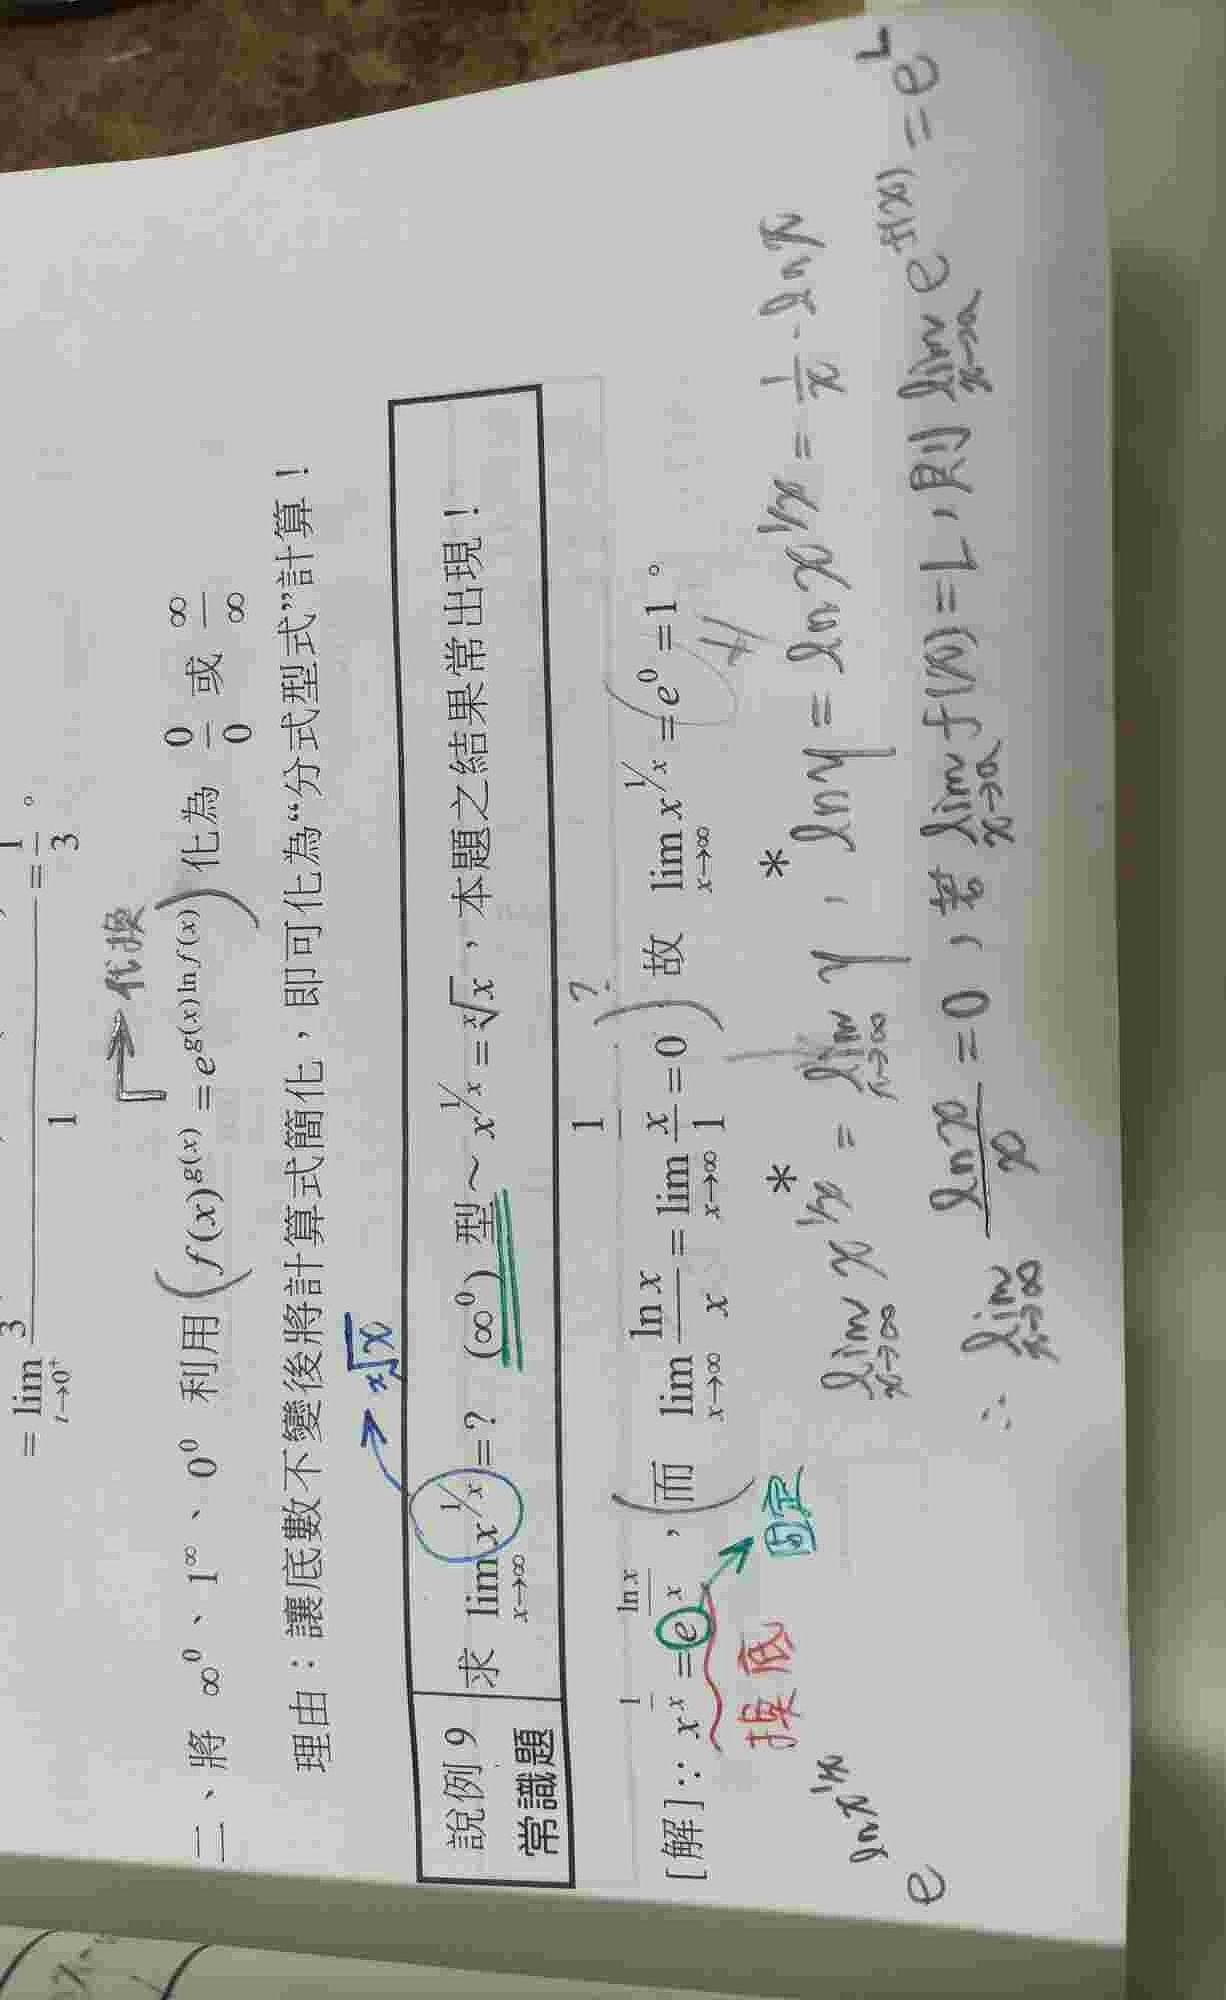 = lim t→0⁺ 3/1 = 1/3。
代換
二、將 ∞⁰、1^∞、0⁰ 利用 (f(x)^g(x) = e^(g(x) ln f(x))) 化為 0/0 或 ∞/∞
理由：讓底數不變後將計算式簡化，即可化為“分式型式”計算！
ˣ√x
說例 9 求 lim x→∞ x^(1/x) = ? (∞⁰) 型～ x^(1/x) = ˣ√x，本題之結果常出現！
常識題
[解]：∵ x^(1/x) = e^(ln x/x)，(而 lim x→∞ ln x/x = lim x→∞ (1/x)/1 = 0) ? 故 lim x→∞ x^(1/x) = e⁰ = 1。
換底
固定
e^(ln x^(1/x))
lim x→∞ x^(1/x) * = lim x→∞ y , * ln y = ln x^(1/x) = 1/x · ln x
∴ lim x→∞ ln x/x = 0 , 若 lim x→a f(x) = L , 則 lim x→a e^f(x) = e^L